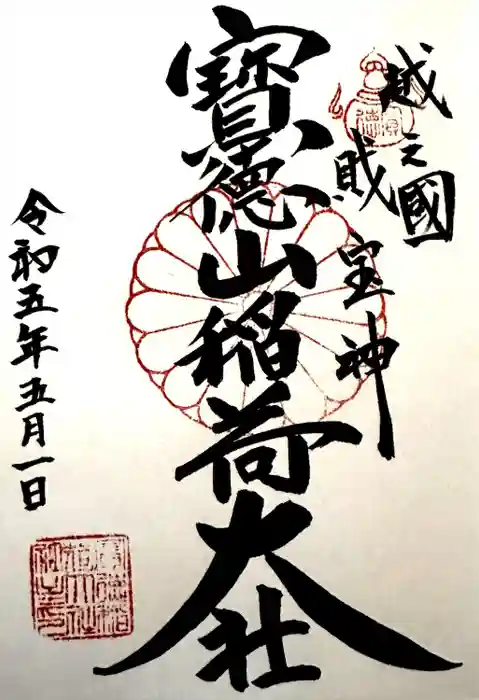 越之國
財宝神
寳德山稲荷大社
令和五年五月一日